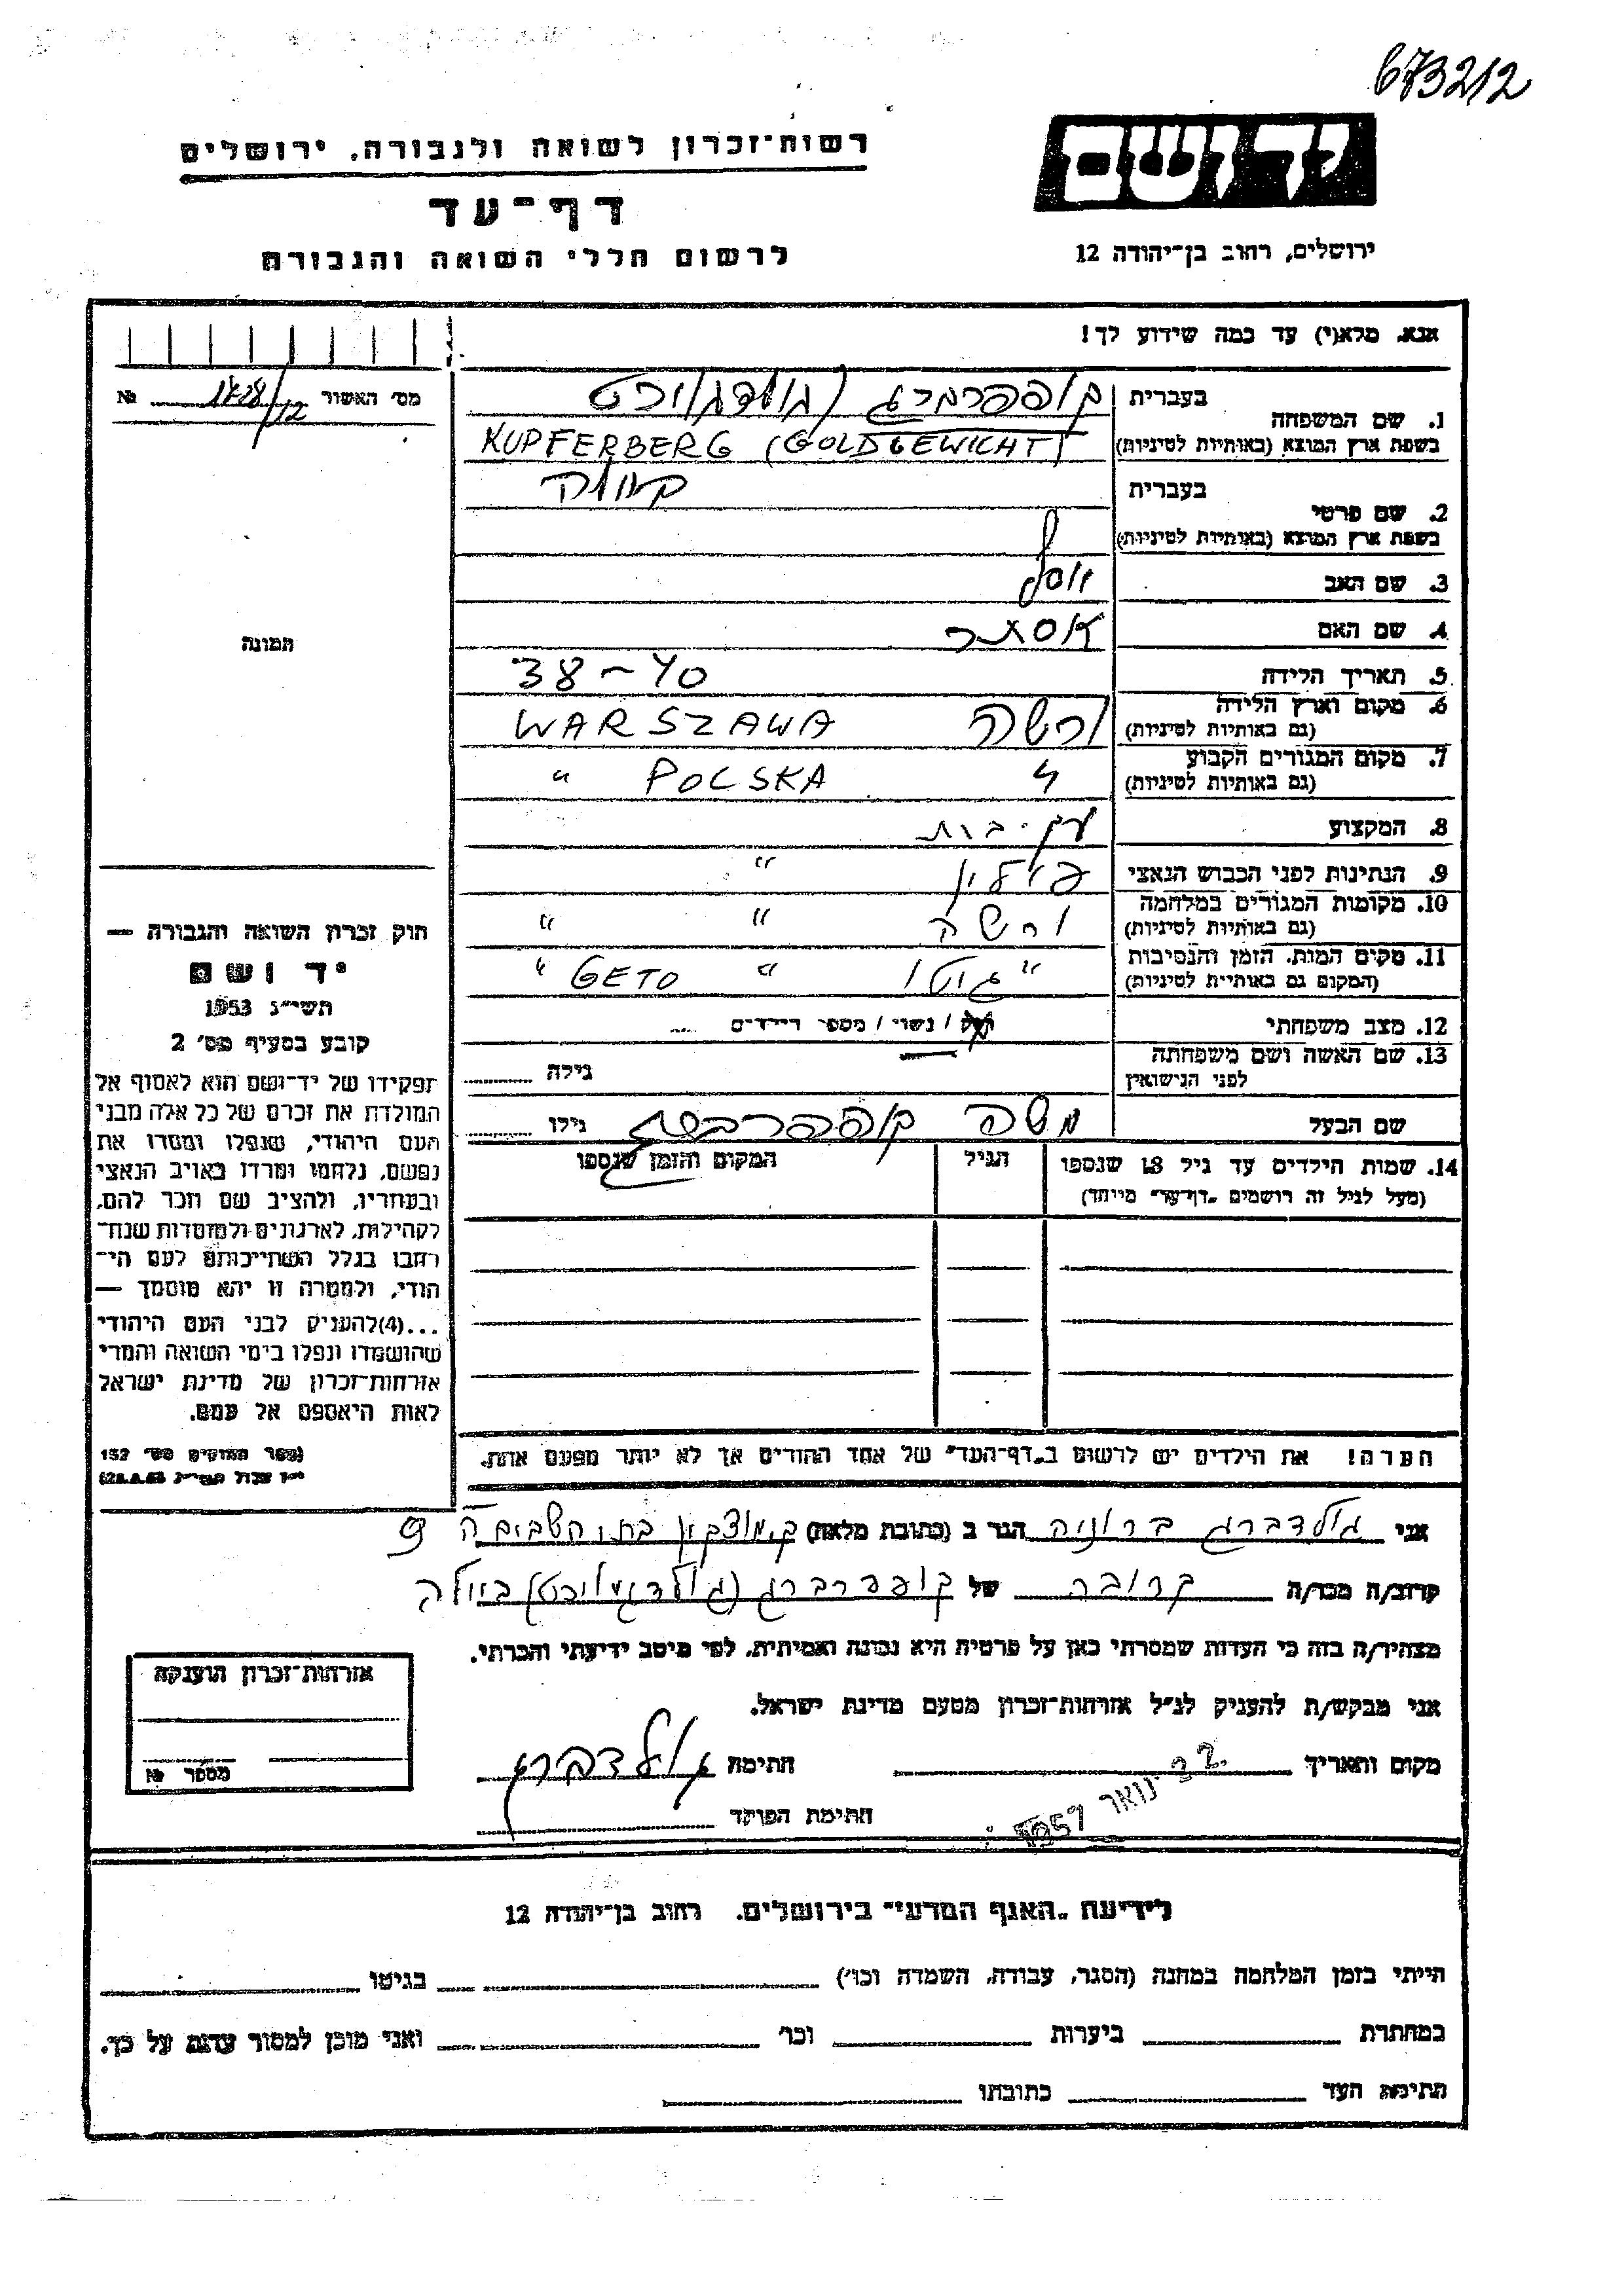 673212
יד ושם
רשות־זכרון לשואה ולגבורה, ירושלים
דף־עד
לרשום חללי השואה והגבורה
ירושלים, רחוב בן־יהודה 12
אנא, מלא(י) עד כמה שידוע לך!
מס׳ האשור № /12
1. שם המשפחה
בעברית קופפרברג (גולדגויכט
בשפת ארץ המוצא (באותיות לטיניות) KUPFERBERG (GOLDGEWICHT)
2. שם פרטי
בעברית
בשפת ארץ המוצא (באותיות לטיניות)
3. שם האב יוסף
4. שם האם אסתר
5. תאריך הלידה 38-40
6. מקום וארץ הלידה ורשה WARSZAWA
(גם באותיות לטיניות)
7. מקום המגורים הקבוע " POLSKA "
(גם באותיות לטיניות)
8. המקצוע עק. בית
9. הנתינות לפני הכבוש הנאצי פולין "
10. מקומות המגורים במלחמה ורשה " "
(גם באותיות לטיניות)
11. מקום המות, הזמן והנסיבות " גיטו " GETO "
(המקום גם באותיות לטיניות)
12. מצב משפחתי רווק / נשוי / מספר הילדים
13. שם האשה ושם משפחתה
לפני הנישואין גילה
שם הבעל משה קופפרברג גילו
14. שמות הילדים עד גיל 18 שנספו
(מעל לגיל זה רושמים „דף־עד״ מיוחד)
הגיל
המקום והזמן שנספו
תמונה
חוק זכרון השואה והגבורה —
יד ושם
תשי״ג 1953
קובע בסעיף מס׳ 2
תפקידו של יד־ושם הוא לאסוף אל
המולדת את זכרם של כל אלה מבני
העם היהודי, שנפלו ומסרו את
נפשם, נלחמו ומרדו באויב הנאצי
ובעוזריו, ולהציב שם וזכר להם,
לקהילות, לארגונים ולמוסדות שנח־
רבו בגלל השתייכותם לעם הי־
הודי, ולמטרה זו יהא מוסמך —
...(4)להעניק לבני העם היהודי
שהושמדו ונפלו בימי השואה והמרי
אזרחות־זכרון של מדינת ישראל
לאות היאספם אל עמם.
(ספר החוקים מס׳ 132
י״ז אלול תשי״ג 28.8.53)
הערה! את הילדים יש לרשום ב„דף־העד״ של אחד ההורים אך לא יותר מפעם אחת.
אני גולדברג ברוניה הגר ב (כתובת מלאה) ק. מוצקין 9
קרוב/ה מכר/ה קרובה של קופפרברג
מצהיר/ה בזה כי העדות שמסרתי כאן על פרטיה היא נכונה ואמיתית, לפי מיטב ידיעתי והכרתי.
אני מבקש/ת להעניק לנ״ל אזרחות־זכרון מטעם מדינת ישראל.
מקום ותאריך 22 ינואר 1957 חתימה גולדברג
חתימת הפוקד
אזרחות־זכרון הוענקה
מספר №
לידיעת „האגף המדעי״ בירושלים. רחוב בן־יהודה 12
הייתי בזמן המלחמה במחנה (הסגר, עבודה, השמדה וכו׳) בגיטו
במחתרת ביערות וכו׳ ואני מוכן למסור עדות על כך.
חתימת העד כתובתו